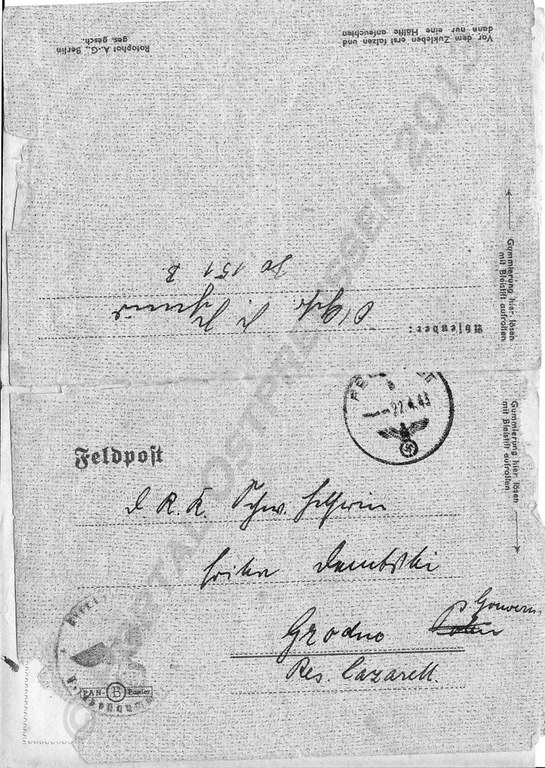 Vor dem Zukleben erst falzen und
dann nur eine Hälfte anfeuchten
Rotophot A.-G., Berlin
ges. gesch.
Gummierung hier lösen
mit Bleistift aufrollen
Absender:
30 151 B
Gummierung hier lösen
mit Bleistift aufrollen
22.4.43
Feldpost
D R. K. Schw.
Erika Dembski
Gouvern.
Grodno Polen
Res. Lazarett.
B
PORTAL-OSTPREUSSEN 201